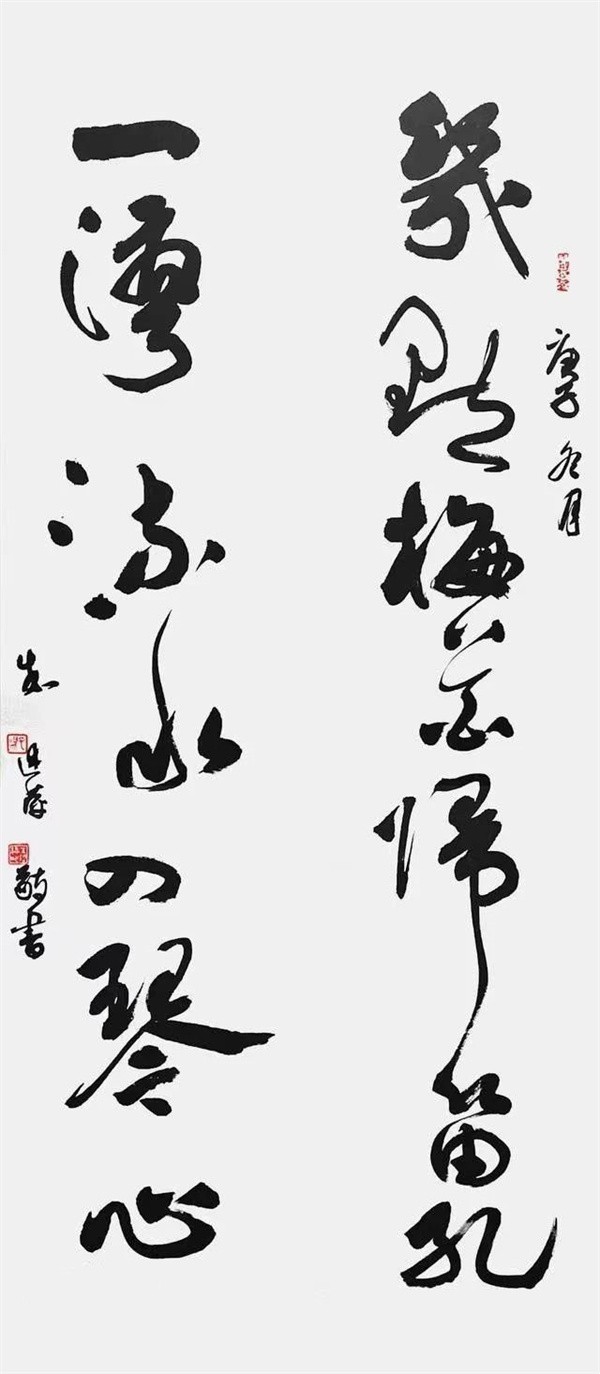 庚子冬月
幾點梅花歸笛孔
一灣流水入琴心
敬書